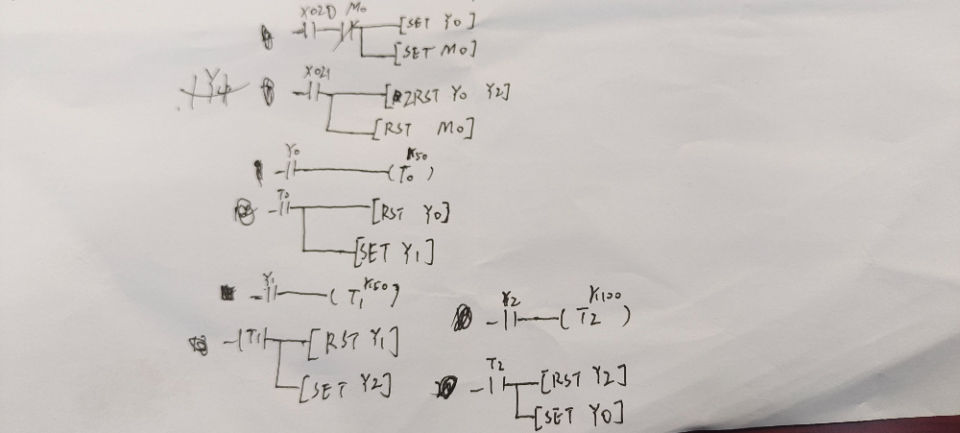 X020 M0 [SET Y0]
[SET M0]
X021 [ZRST Y0 Y2]
[RST M0]
Y0 K50 (T0)
T0 [RST Y0]
[SET Y1]
Y1 K50 (T1)
T1 [RST Y1]
[SET Y2]
Y2 K100 (T2)
T2 [RST Y2]
[SET Y0]